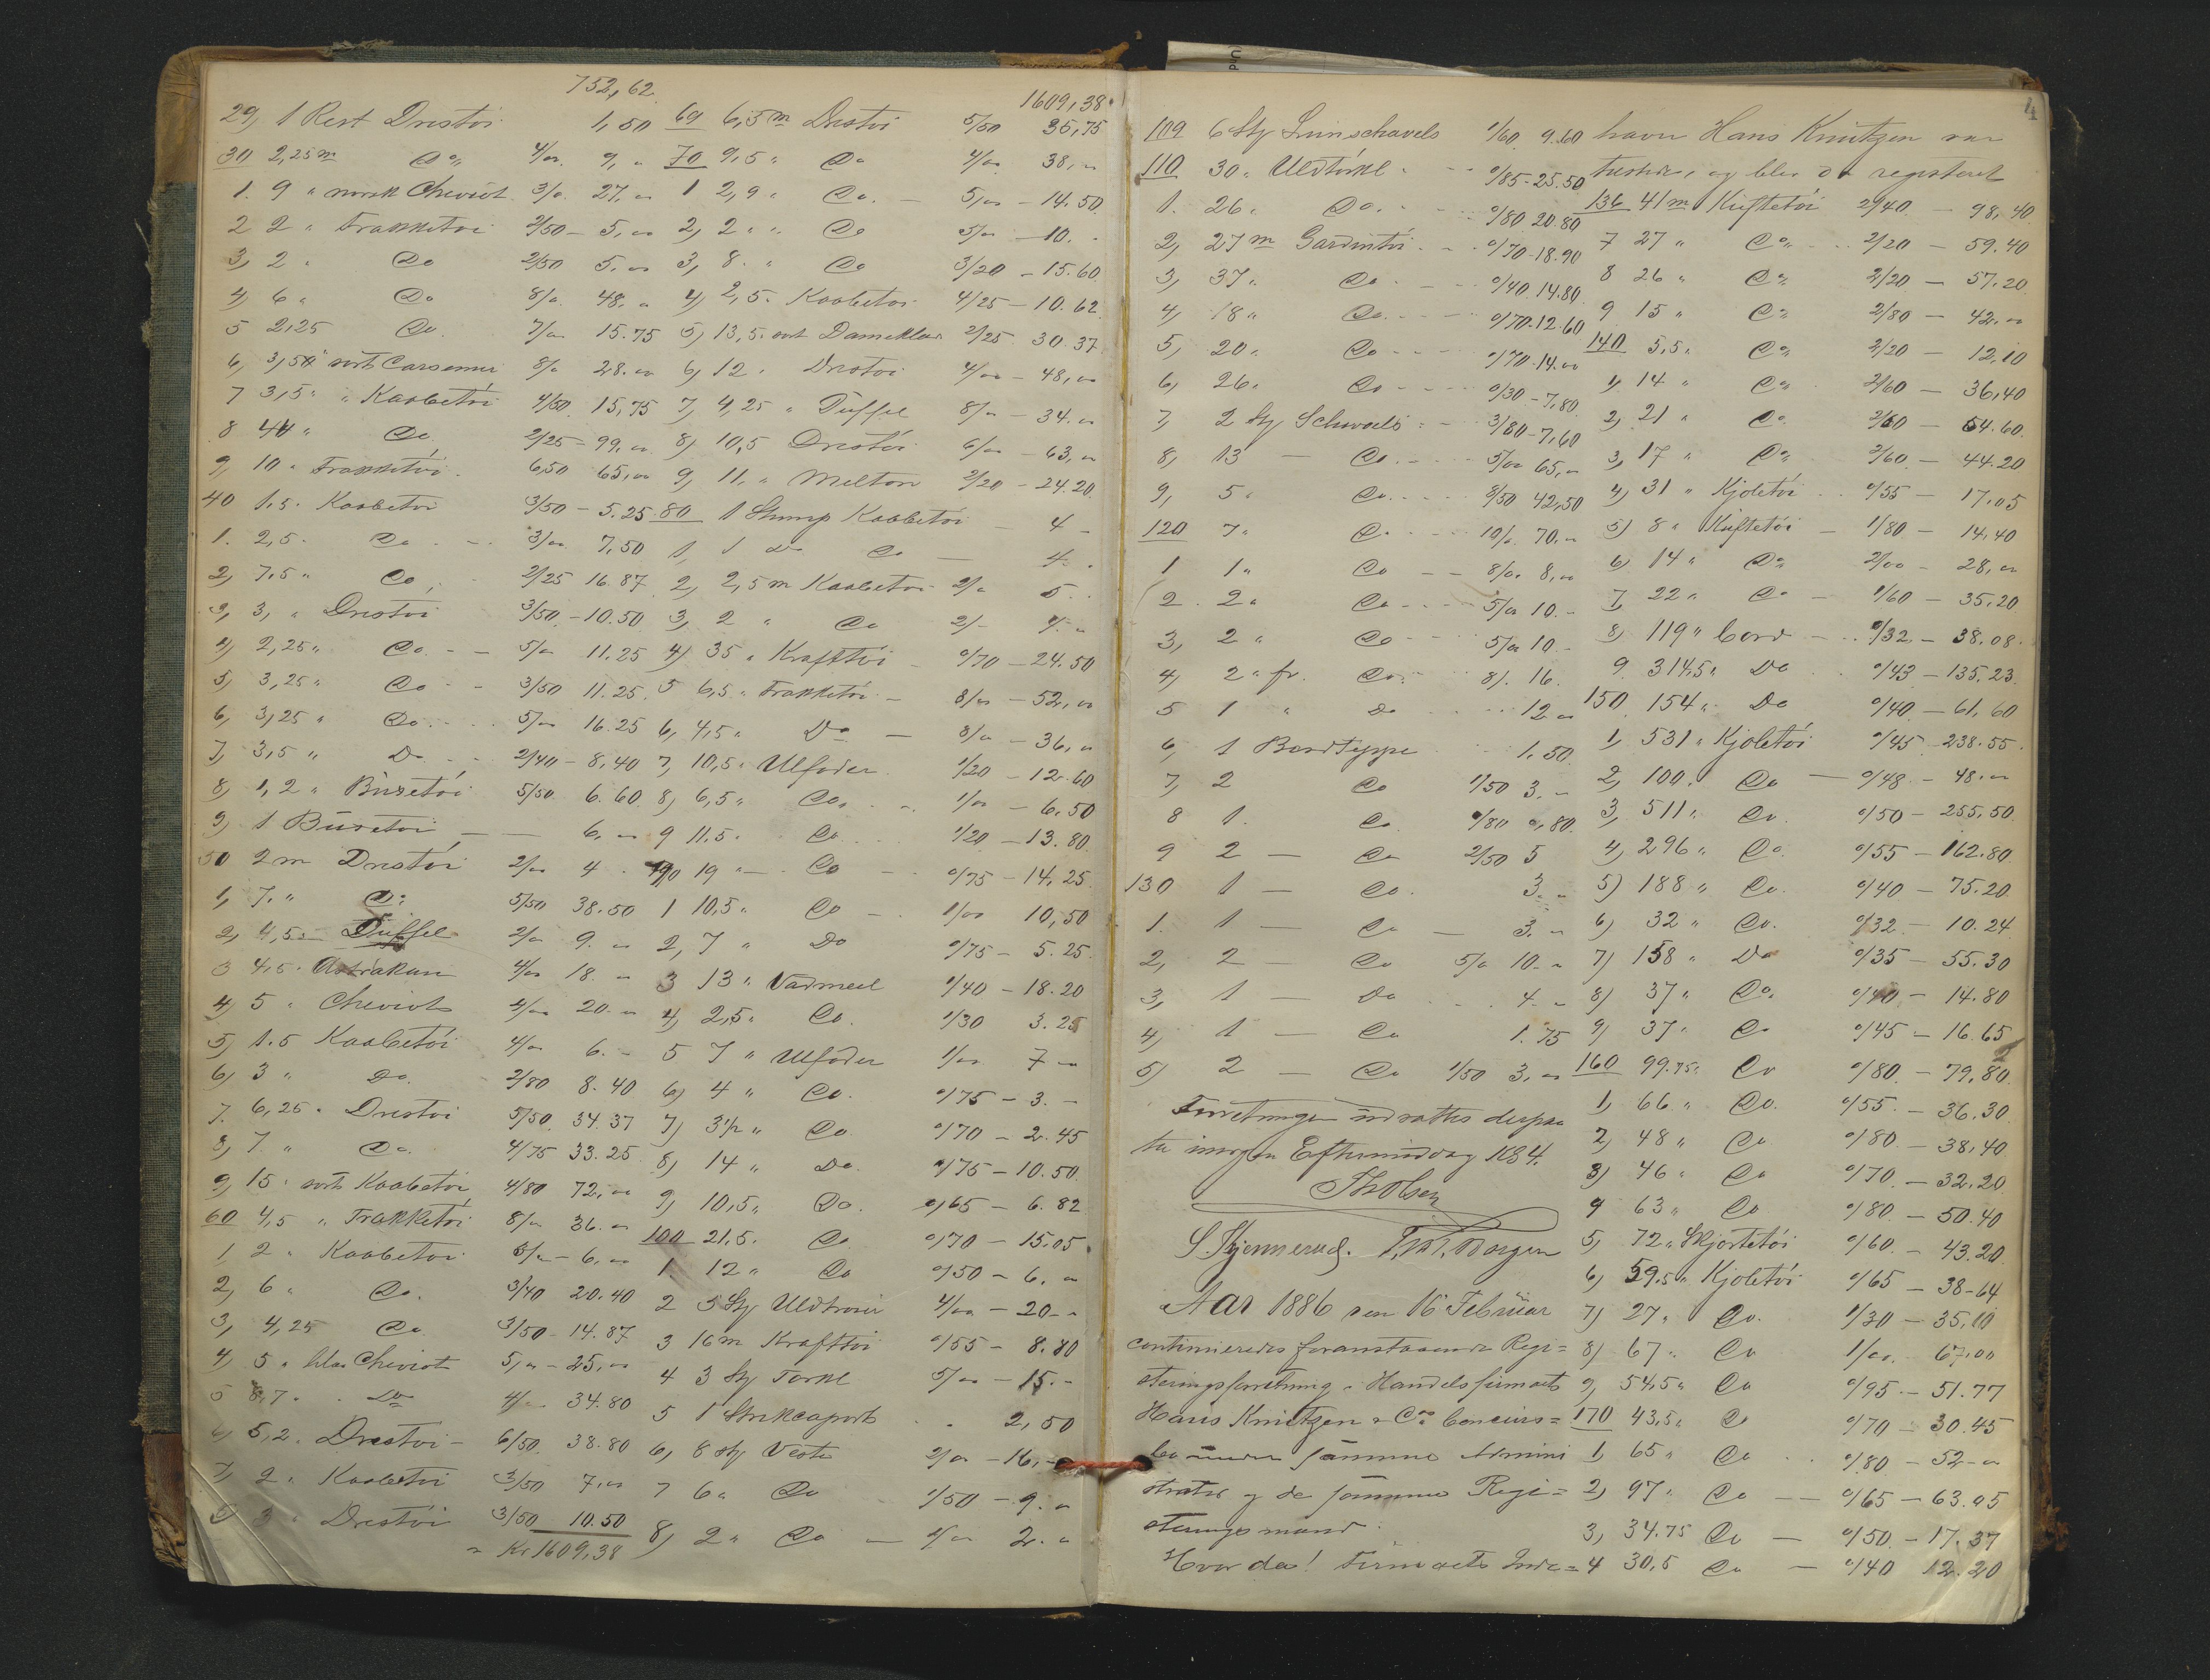 752,62
29, 1 Rest Drestöi 1,50
30 2,25 m Do 4/00 9, "
1. 9 " norsk Cheviot 3/0. 27, 00
2 2 " Frakketöi 2/50 - 5, 00
3, 2 " Do 2/50 5. 00
4) 6 " Do 8/0. 48, 0
5 2,25 Do. 7/00 15.75
6, 3,5 " sort 8/0 28. 00
7 3,5 " " Kaabetöi 4/50 15,75
8 44 " Do 2/25 = 99, 00
9, 10 " Frakketöi. 6,50 65,00
40 1.5. Kaabetöi 3/50 - 5.25
1. 2,5. Do 3/00 7,50
2, 7.5 " Do 2/25 16.87
3, 3, " Drestöi 3/50 - 10.50
4) 2,25 " Do. - - 5/00 11.25
5) 3,25 " Do - - 3/50 11.25
6, 3,25 " Do. 5/00 16.25
7, 3,5 " Do - 2/40 - 8,40
8, 1,2 " Büxetöi 5/50 6.60
9) 1 Büxetöi - - 6. -
50 2 m Drestöi 2/00 4
1, 7. " Do: 5/50 38.50
2, 4,5 - Düffel 2/00 9. -
3 4,5. Astrakan 4/00 18. -
4) 5 " Cheviot 4/00 20. -
5) 1.5 Kaabetöi 4/00 6. -
6, 3 " Do. 2/80 8.40
7. 6,25. Drestöi 5/50. 34.37
8, 7 " Do. 4/75 33.25
9, 15. sort Kaabetöi 4/80 72, 00
60 4,5 " Frakketöi 8/00 36. 00
1, 2 " Kaabetöi 3/00 - 6, 00
2, 6 " Do. 3/40 20.40
3, 4,25 Do 3/50 - 14.87
4) 5 " blaa Cheviot 5,00 - 25, 00
5 8,7. " Do 4/00 34.80
6, 5,2. Drestöi - 6/50. 38.80
7, 2. Kaabetöi 3/50 7,00
8) 3 " Drestöi 3/50 10.50
= Kr 1609,38
1609,38.
69 6,5 m Drestöi 5/50 35,75
70 9,5 " Do 4/00 38, 00
1 2,9 " Do. - 5/00 - 14.50
2, 2 " " Do 5/00 - 10. -
3, 8. " Do 3/20 - 15.60
4) 2,5. Kaabetöi 4/25 - 10.62
5) 13,5. sort Dameklæde 2/25 30.37
6, 12. Drestöi 4/00 - 48,00
7, 4,25 " Düffel 8/00 - 34. 00
8) 10,5 Drestöi 6/00 - 63, 00
9, 11. " Melton 2/20 - 24.20
80 1 Stump Kaabetöi - 4 -
1, 1 do Do - 4. -
2, 2,5 m Kaabetöi 2/0 5. -
3, 2 " Do 2/- 4. -
4) 35 " Krafttöi - 0/70 - 24.50
5 6,5 " Frakketöi - 8/00 - 52, 00
6, 4,5 " Do - 8/00 - 36, 00
7, 10,5. Ulfoder 1/20 - 12.60
8) 6,5 " Do, 1/00 - 6.50
9 11.5. Do 1/20 - 13.80
90 19 " - Do 0/75 - 14,25
1 10,5 " Do - 1/00 10,50
2, 7 " Do 0/75 - 5.25
3 13 " Vadmeel 1/40 - 18.20
4) 2,5 " Do. 1/30 3.25
5 7 " Ulfoder 1/00 7 -
6) 4 " Do. 0/75 - 3. -
7) 3½ " Do 0/70 - 2.45
8) 14 " Do. 0/75 - 10.50
9, 10,5 " Do. 0/65 - 6.82
100 21.5. Do 0/70 - 15.05
1. 12 " Do 0/50 - 6. 00
2 5 Stj Uldtröier 4/00 - 20 - -
3 16 m Krafttöi 0/55 - 8.80
4 3 Stj Törkl 5/00 - 15. -
5 1 2,50
6, 8 Stj Veste 2/00 - 16, -
7 6 " Do 1/50 - 9. 00
8) 2 " Do - 1/00 2. 00
4
109 6 Stj 1/60 9.60
110 30 " Uldtörkl. - - 0/85 - 25.50
1. 26 " Do. - - 0/80 20.80
2, 27 m Gardintöi - - 0/70 - 18.90
3, 37 " Do. - - 0/40. 14.80
4, 18 " Do. - - - 0/70 - 12.60
5, 20 " Do - - - 0/70 - 14. 00
6, 26 " Do - - - 0/30 - 7,80
7, 2 Stj Schwals - - 3/80 - 7,60
8, 13 - Do. - - - 5/00 65, 00
9, 5 " Do. - - - 8/50 42,50
120 7 " Do - - - 10/0. 70. 00
1 1 " Do - - 8/00 8, 00
2. 2 " Do - - - 5/00 10. -
3, 2 " Do - - 5/00 10. -
4, 2 " fr. Do. 8/. 16.
5 1 " Do 12 00
6, 1 Bordteppe 1.50.
7, 2 Do 1/50 3. -
8 1. Do 0/80 0,80.
9 2 - Do 2/50 5
130 1 - Do. 3. 00
1. 1 - Do - 3. 00
2, 2 - Do 5/0 10. -
3, 1 - Do 4. -
4) 1 - Do 1.75
5) 2 - Do 1/50 3. 00
Forretningen udsattes derpaa
til imorgen Eftermiddag Kl 4.
Th Olsen
S. Skjennerud.
Aar 1886 den 16 Februar
continueredes foranstaaende Regi=
steringsforretning i Handelsfirmaets
Hans Knutzen & Cos Concurs=
bo under samme Admini
strator og de samme Regi=
steringsmænd.
Hvor da! Firmaets Inde=
haver Hans Knutzen var
tilstede, og blev da registeret
136 41 m Kuftetöi 2/40 - 98,40
7 27 " Do " 2/20 - 59.40
8 26 " Do " 2/20 - 57.20
9 15 " Do " 2/80 - 42. 00
140 5.5 " Do " 2/20 - 12,10
1, 14 " Do " 2/60 - 36,40
2, 21 " Do. 2/60 - 54.60
3, 17 " Do " 2/60 - 44.20
4) 31 " Kjoletöi 0/55 - 17.05
5) 8 " Kuftetöi - 1/80 - 14,40
6) 14 " Do " 2/00 - 28, 00
7, 22 " Do - 1/60 - 35.20
8) 119 " Cord - 0/32 - 38.08.
9. 314.5 " Do 0/43 - 135.23
150 154 " Do 0/40 - 61,60
1, 531 " Kjoletöi 0/45 - 238.55.
2, 100. " Do - 0/48 - 48. 00
3, 511 " Do. 0/50 - 255.50
4, 296 " Do. 0/55 - 162.80
5) 188 " Do. 0/40 - 75.20
6) 32 " Do. 0/32 - 10.24
7) 158 " Do 0/35 - 55.30
8) 37 " Do. 0/40 - 14.80
9, 37 " Do 0/45 - 16.65
160 99.75 " Do 0/80 - 79,80
1, 66 " Do. 0/55. - 36.30
2, 48 " Do 0/80 - 38,40
3) 46 " Do 0/70. - 32.20
4 63 " Do 0/80 - 50.40
5, 72 " Skjortetöi 0/60 - 43.20
6, 59.5 " Kjoletöi 0/65 - 38-64
7) 27 " Do. 1/30 - 35,10
8) 67 " Do 1/00. 67.00
9, 54,5 " Do 0/95 - 51.77
170 43,5 " Do 0/70 - 30.45
1, 65 " Do 0/80 - 52 - 00
2, 97 " Do - - 0/65 - 63.05
3, 34.75 Do - 0/50 - 17.37
4 30,5 Do - 0/40 12.20